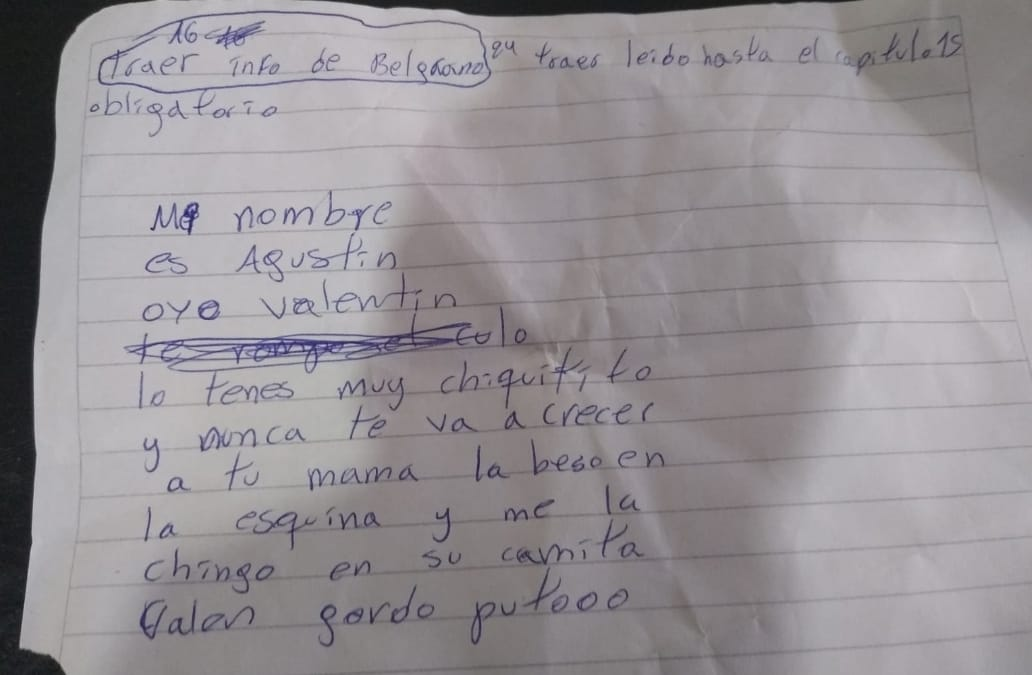 16
traer info de Belgrano 24 traer leido hasta el capitulo 15
obligatorio
Me nombre
es Agustin
oye valentin
te rompo el culo
lo tenes muy chiquitito
y nunca te va a crecer
a tu mama la beso en
la esquina y me la
chingo en su camita
Valen gordo putooo